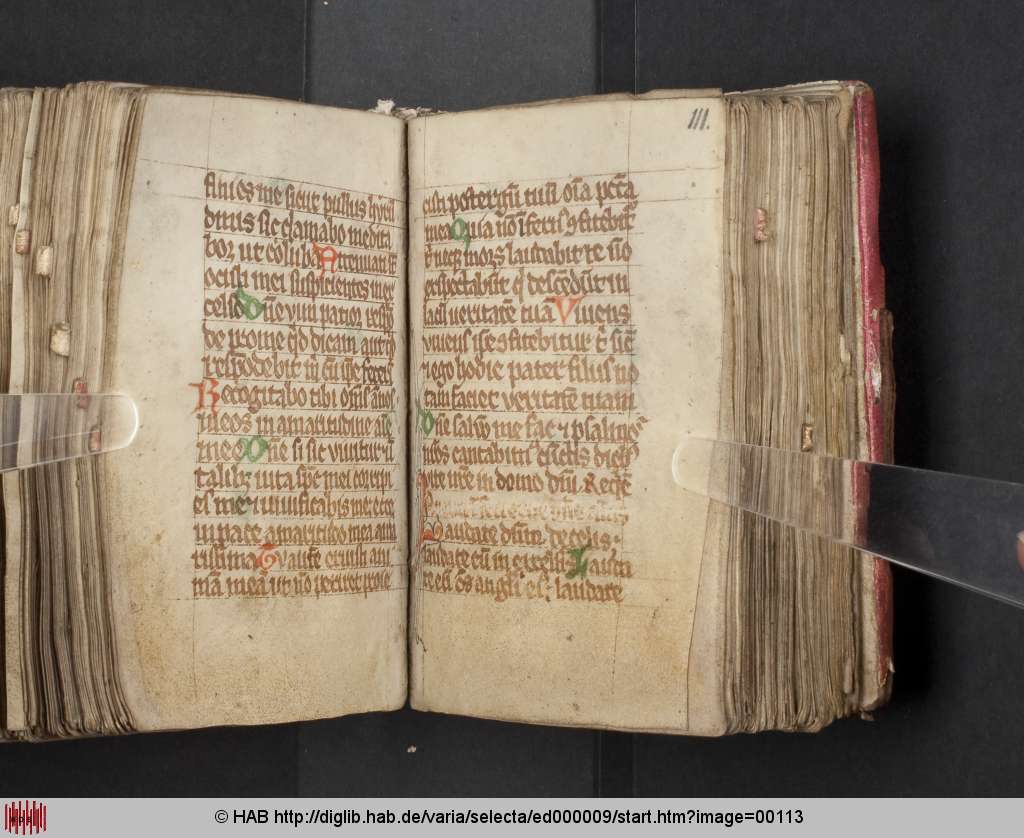 finies me sicut pullus hyrun
dinis sic clamabo medita
bor ut columba Attenuati st
oculi mei suspicientes in ex
celso Dn̄e vim patior respō
de pro me qd̄ dicam aut qd̄
respōdebit m̄ cū ip̄e fecerit
Recogitabo tibi om̄s annos
meos in amaritudine aīe
mee Dn̄e si sic vivitur et ī
talibꝫ vita sp̄c mei corripi
es me et vivificabis me ecce
in pace amaritudo mea ama
rissima Tu autē eruisti ani
mā meā ut nō periret proie
111.
cisti post tergū tuū oīa pccā
mea Quia nō īfernꝰ ꝯfitebit᷑
t̄ neqꝫ mors laudabit te nō
expectabūt q̄ descēdūt in
lacū veritatē tuā Vivens
vivens ip̄e ꝯfitebitur t̄ sict̄
et ego hodie pater filiis no
tam faciet veritatē tuam
Dn̄e salvū me fac et psalmos
nr̄os cantabimꝰ cūctis diebꝰ
vite nr̄e in domo dn̄i
Laudate dn̄m de celis
laudate eū in excelsis Lauda
te eū om̄s angl̄i eiꝰ laudate
© HAB http://diglib.hab.de/varia/selecta/ed000009/start.htm?image=00113